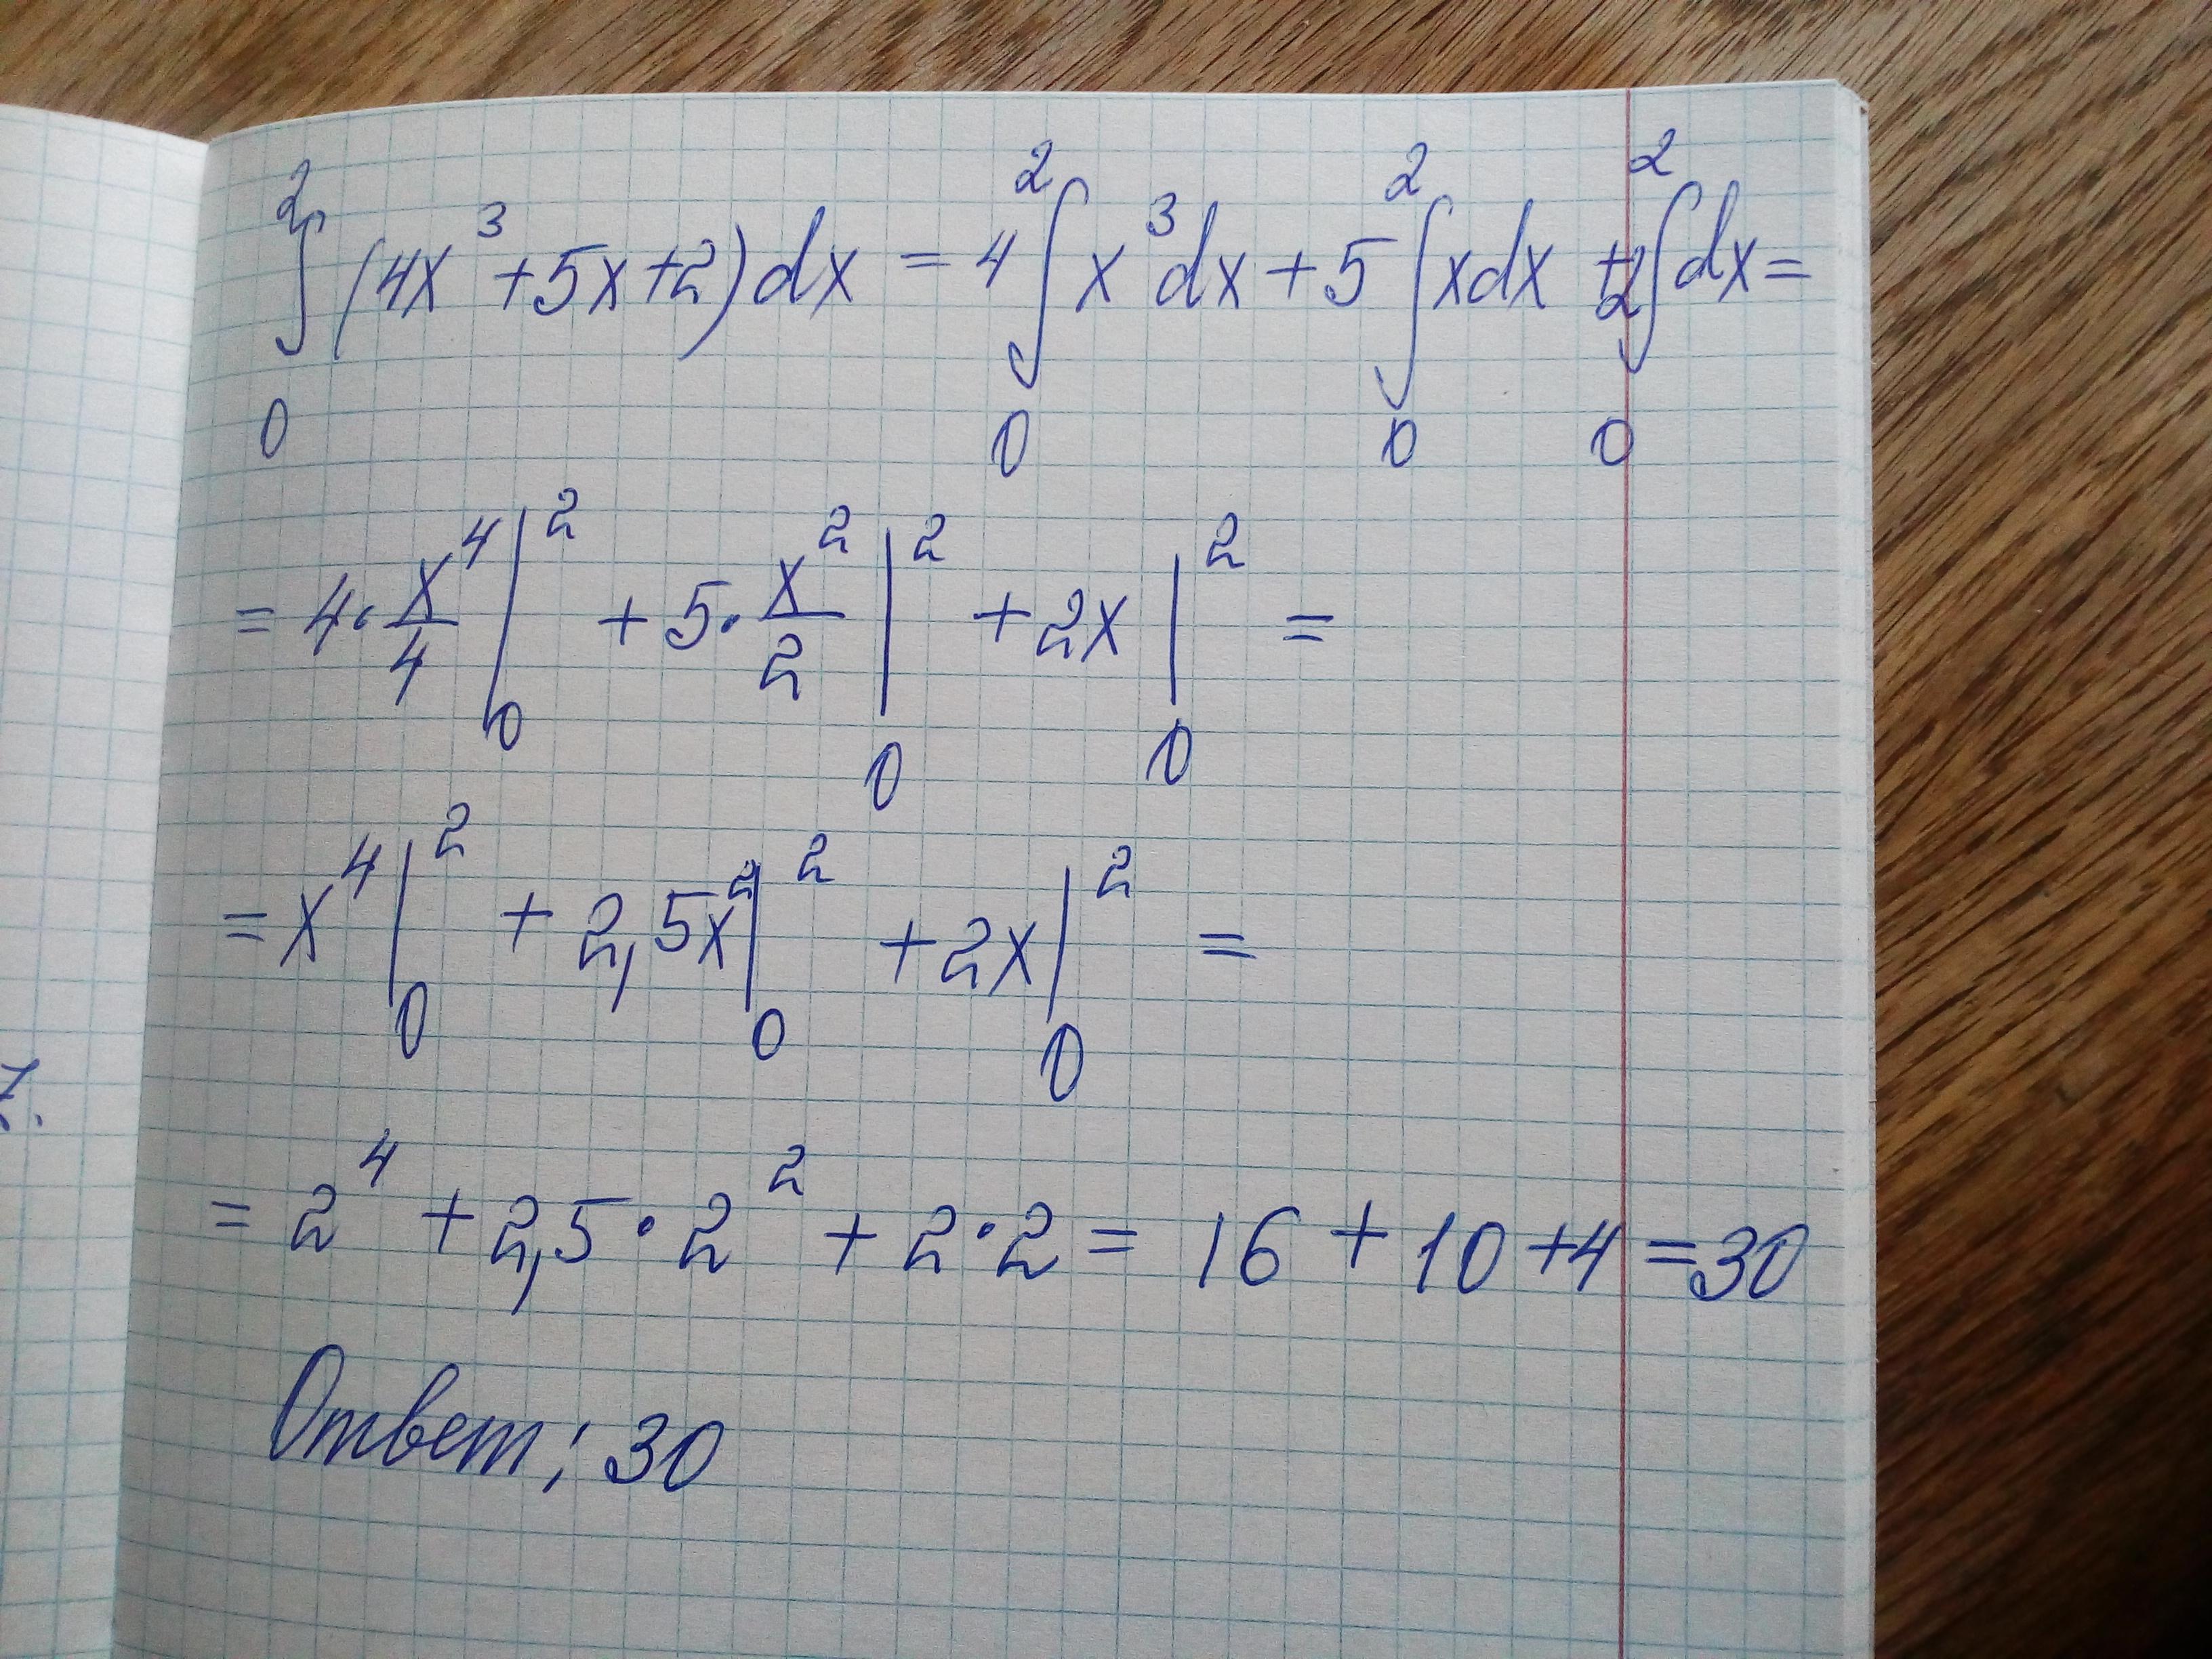 ∫₀² (4x³+5x+2)dx = 4∫₀² x³dx + 5∫₀² xdx + 2∫₀² dx =
= 4· x⁴/4 |₀² + 5· x²/2 |₀² + 2x |₀² =
= x⁴ |₀² + 2,5x² |₀² + 2x |₀² =
= 2⁴ + 2,5·2² + 2·2 = 16 + 10 + 4 = 30
Ответ: 30